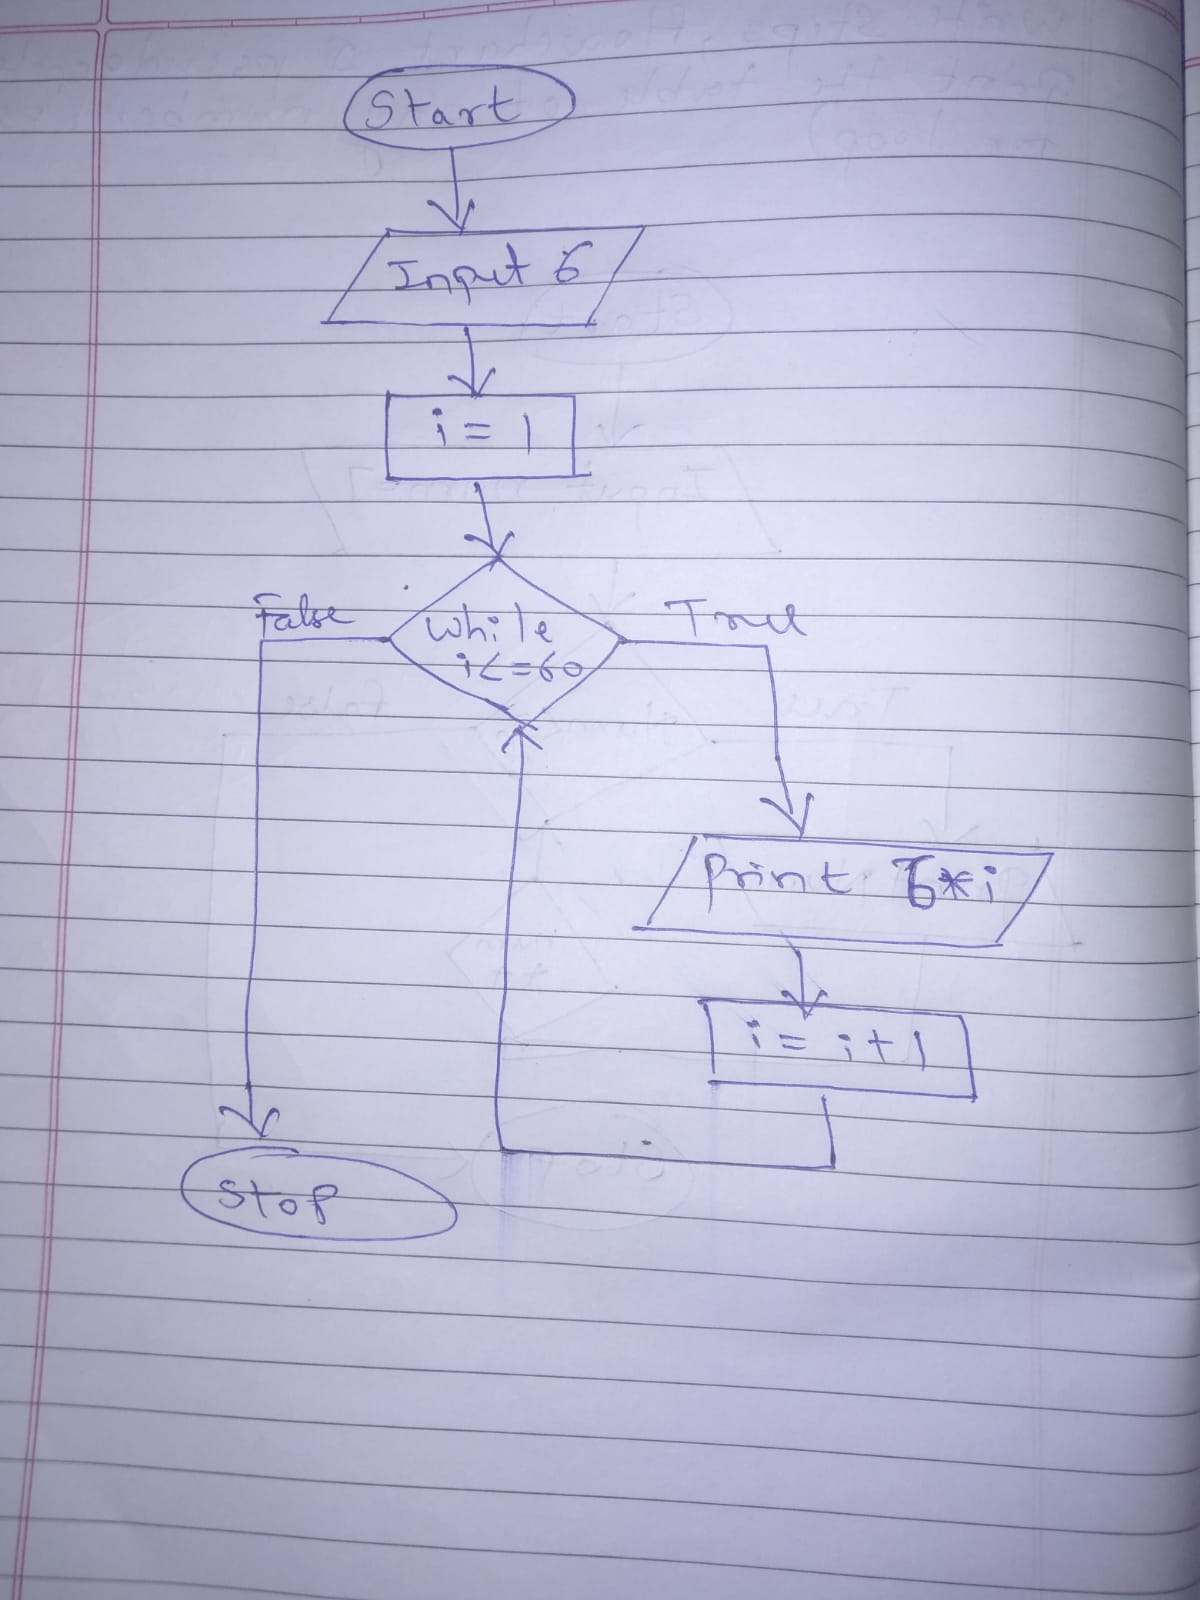 Start
Input 6
i = 1
False
while
i<=60
True
Print 6*i
i = i+1
Stop